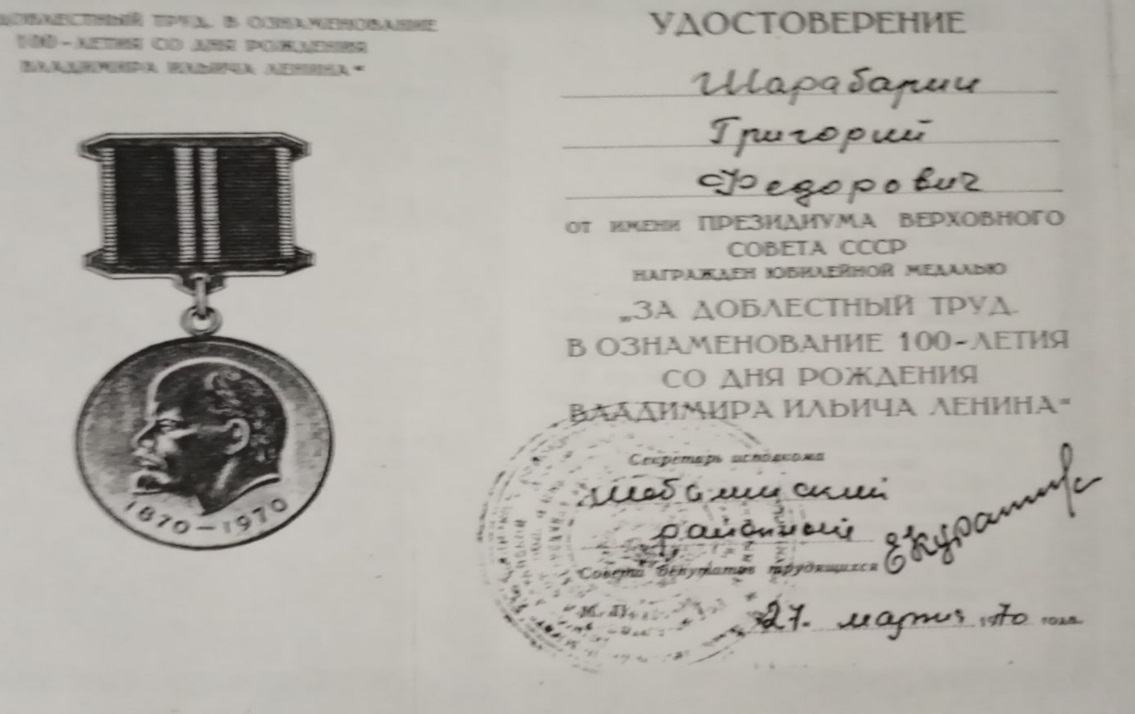 ДОБЛЕСТНЫЙ ТРУД. В ОЗНАМЕНОВАНИЕ
100-ЛЕТИЯ СО ДНЯ РОЖДЕНИЯ
ВЛАДИМИРА ИЛЬИЧА ЛЕНИНА“
1870-1970
УДОСТОВЕРЕНИЕ
Шарабарин
Григорий
Федорович
ОТ ИМЕНИ ПРЕЗИДИУМА ВЕРХОВНОГО
СОВЕТА СССР
НАГРАЖДЕН ЮБИЛЕЙНОЙ МЕДАЛЬЮ
„ЗА ДОБЛЕСТНЫЙ ТРУД.
В ОЗНАМЕНОВАНИЕ 100-ЛЕТИЯ
СО ДНЯ РОЖДЕНИЯ
ВЛАДИМИРА ИЛЬИЧА ЛЕНИНА“
Секретарь исполкома
Шабалинский
районный
Совета депутатов трудящихся
27. марта 1970 года